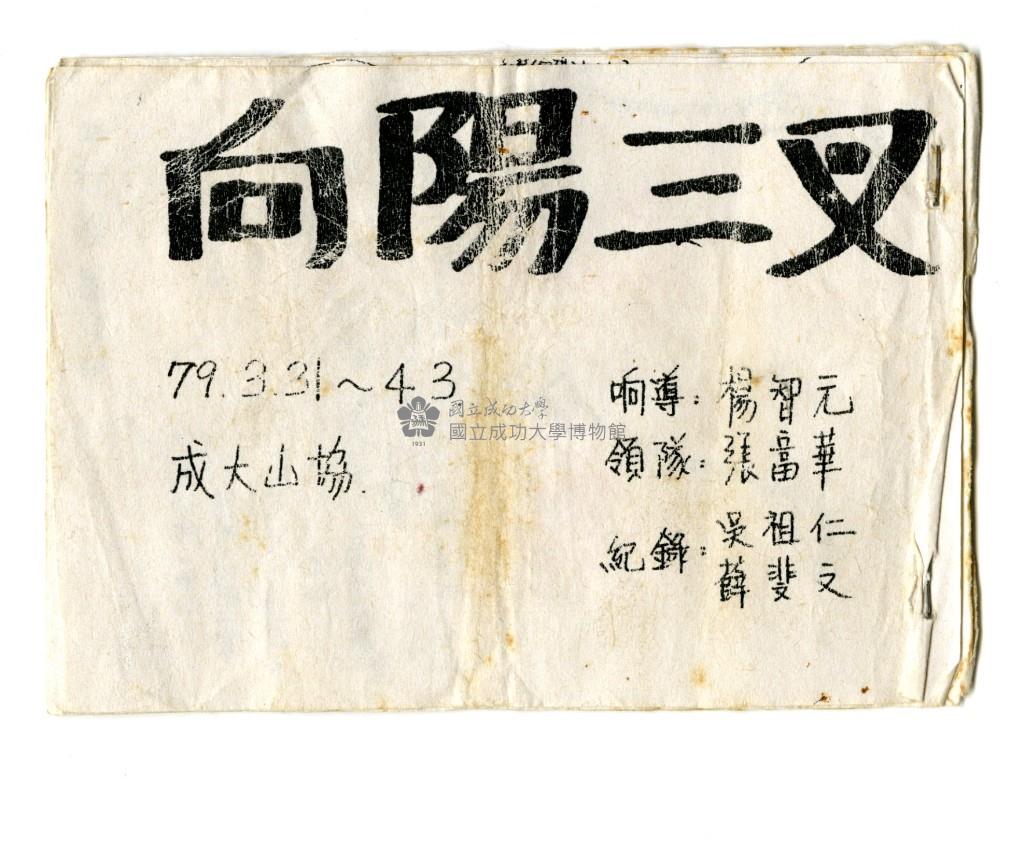 向陽三叉
79.3.31～4.3
成大山協.
响導：楊智元
領隊：張富華
紀錄：吳祖仁
薛斐文
國立成功大學
國立成功大學博物館
1931